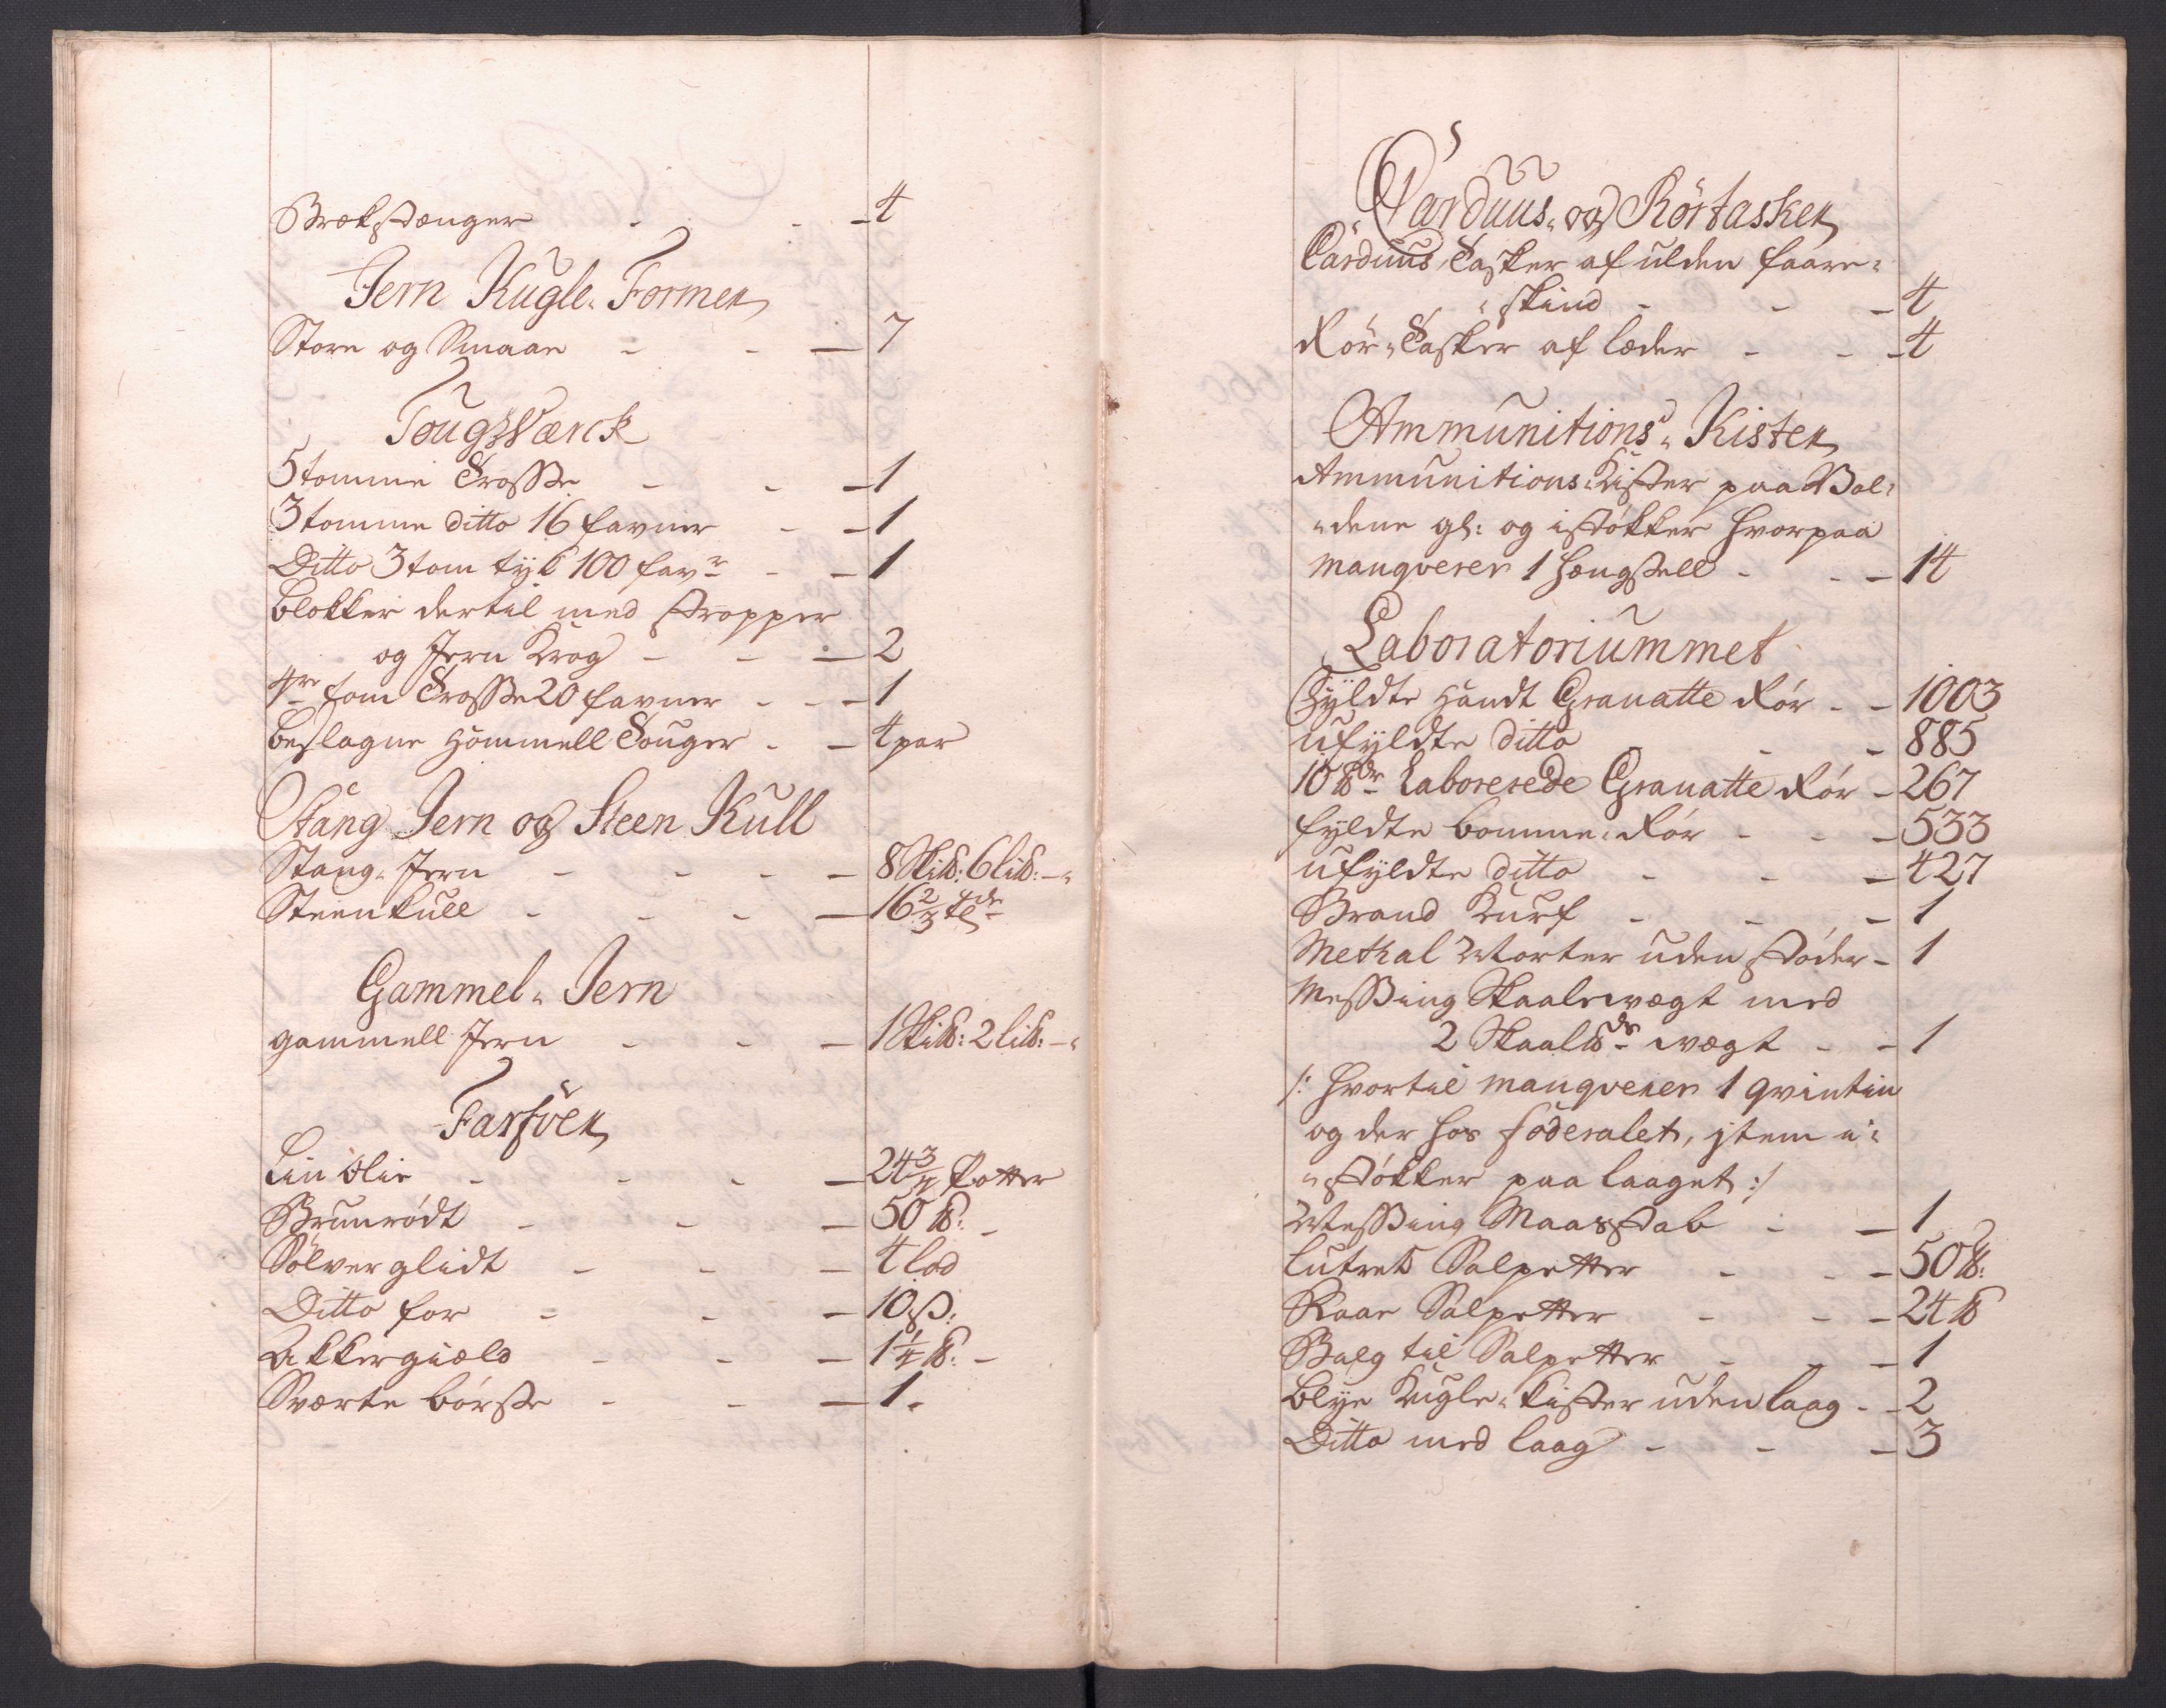 Brækstænger - - - 4
Jern Kugle-Former
Store og Smaae - - - 7
TougsVærck
5 tomme Trosse - - - 1
3 tomme ditto 16 favner - - 1
Ditto 3 tom tyk 100 favr - - 1
blokker dertil med stropper
og Jern Krog - - - 2
4re tom Trosse 20 favner - - - 1
beslagne Hommell Touger - - 4 par
Stang Jern og Steen Kull
Stang-Jern - - - - 8 Sk℔: 6 Li℔: -
Steenkull - - - - 16 2/3 tlr
Gammel-Jern
gammell Jern - - - 1 Sk℔: 2 Li℔: -
Farfver
Lin Olie - - - - 24 3/4 Potter
Brunrødt - - - 50 ℔: -
Sølverglidt - - - 4 lod
Ditto for - - - 10 ß:
Akkergiæld - - - 1 1/4 ℔: -
Sværte børste - - - 1
Carduus- og Rørtasker
Carduus Tasker af ulden faare-
-skind - - - 4
Rør-Tasker af læder - - - 4
Ammunitions-Kister
Ammunitions-Kister paa Vol-
-dene gl: og istøkker hvorpaa
manqverer 1 hængstell - - - 14
Laboratoriummet
Fyldte Handt Granatte Rør - - 1003
ufyldte ditto - - 885
10 ℔dr Laborerede Granatte Rør - 267
fyldte bomme-Rør - - - 533
ufyldte ditto - - - 427
Brand Kurf - - - 1
Methal Morter uden støder - 1
Messing Skaalevægt med
2 Skaal℔dr vægt - - 1
/: hvortil manqverer 1 qvintin
og der hos foderalet, item i-
-støkker paa laaget :/
Messing Maasstab - - 1
Lutret Salpetter - - - 50 ℔:
Raae Salpetter - - - 24 ℔
Balg til Salpetter - - - 1
Blye Kugle-Kister uden laag - - 2
Ditto med laag - - - 3